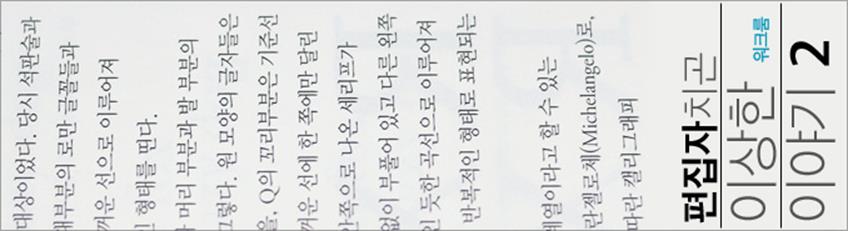 대상이었다. 당시 석판술과
대부분의 로만 글꼴들과
꺼운 선으로 이루어져
인 형태를 띤다.
머리 부분과 발 부분의
그렇다. 원 모양의 글자들은
을, Q의 꼬리부분은 기준선
꺼운 선에 한 쪽에만 달린
안쪽으로 나온 세리프가
없이 부풀어 있고 다른 왼쪽
인 듯한 곡선으로 이루어져
반복적인 형태로 표현되는
계열이라고 할 수 있는
란젤로체(Michelangelo)로,
따란 캘리그래피
편집자치곤
이상한 워크룸
이야기 2